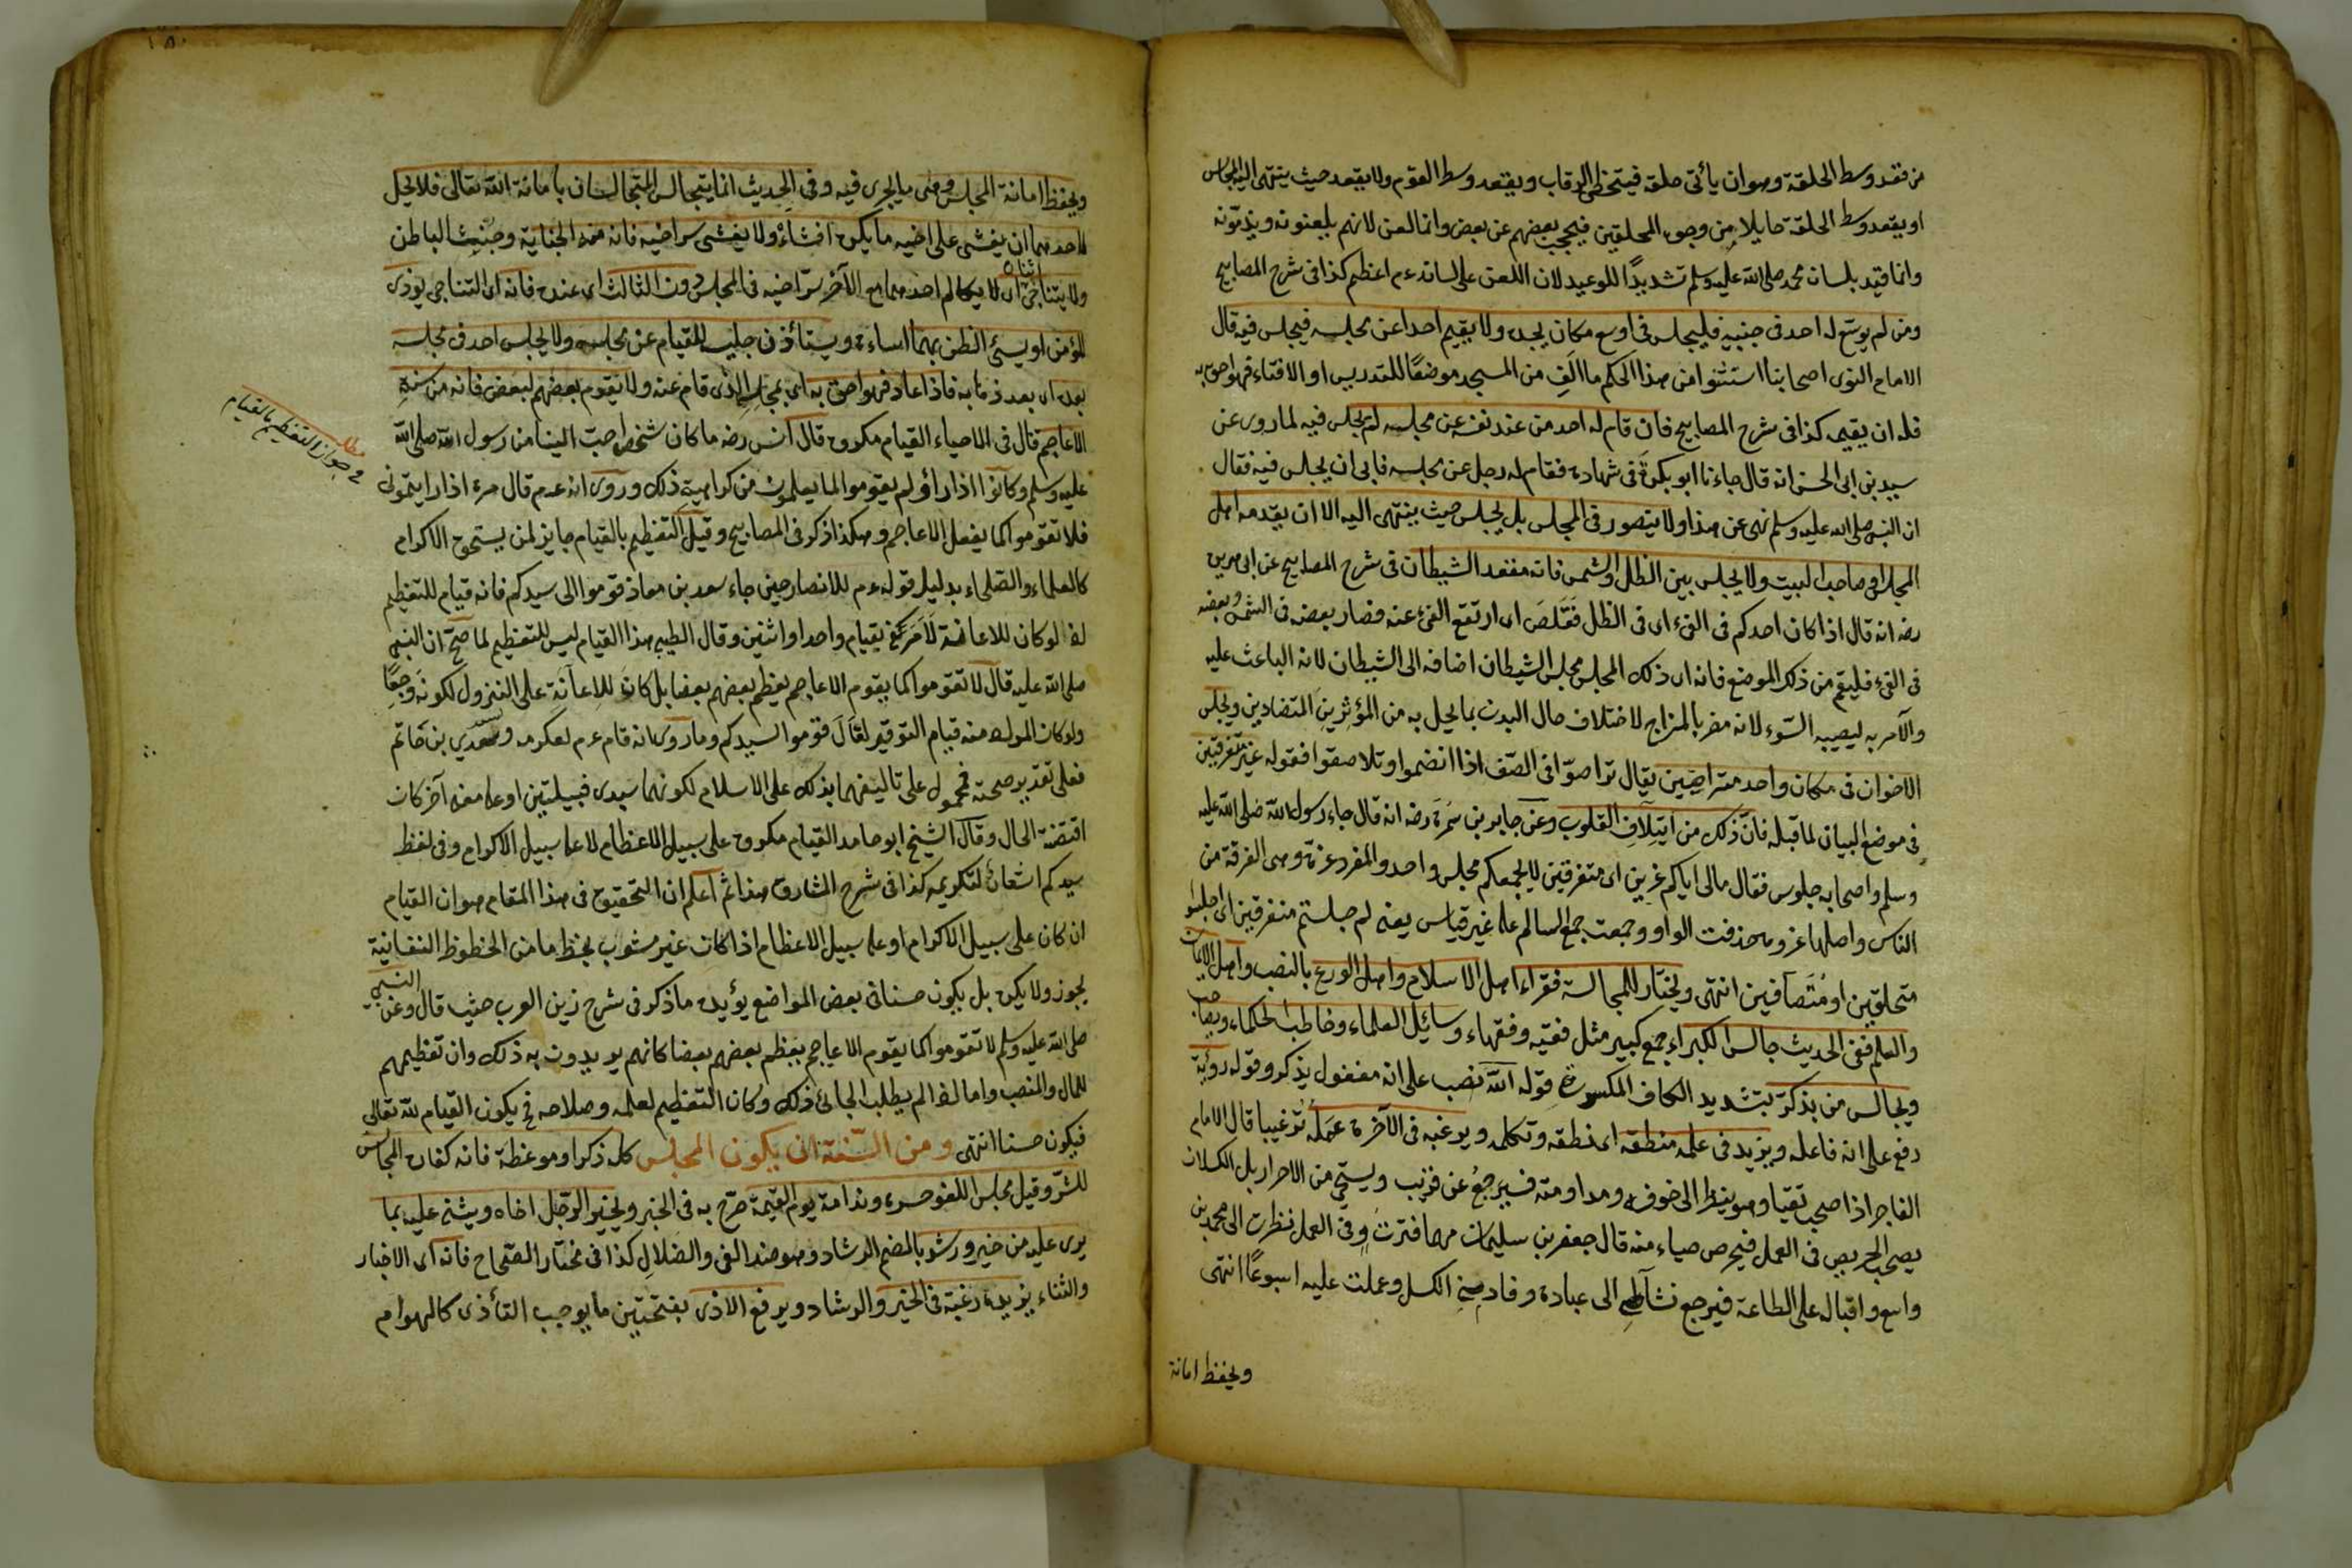 من قعد وسط الحلقة وهو ان يأتى حلقة فيتخطى الرقاب ويقعد وسط القوم ولا يقعد حيث ينتهى اليه المجلس
او يقعد وسط الحلقة حايلا من وجوه المحلقين فيحجب بعضهم عن بعض وانما لعن لانهم يلعنونه ويذمّونه
وانما قيّد بلسان محمد صلى الله عليه وسلم تشديدًا للوعيد لان اللعن على لسانه عم اعظم كذا فى شرح المصابيح
ومن لم يوسّع له احد فى جنبيه فليجلس فى اوسع مكان يجده ولا يقيم احدا عن مجلسه فيجلس فيه قال
الامام النوى اصحابنا استثنوا من هذا الحكم ما الف من المسجد موضعًا للتدريس او الافتاء فهو احق به
فله ان يقيمه كذا فى شرح المصابيح فان قام له احد من عند نفسه عن مجلسه لم يجلس فيه لما روى عن
سعيد بن ابى الحسن انه قال جاءنا ابو بكرة فى شهادة فقام له رجل عن مجلسه فابى ان يجلس فيه فقال
ان النبى صلى الله عليه وسلم نهى عن هذا ولا يتصدر فى المجلس بل يجلس حيث ينتهى اليه الا ان يقدمه اهل
المجلس او صاحب البيت ولا يجلس بين الظل والشمس فانه مقعد الشيطان فى شرح المصابيح عن ابى هريرة
رضه انه قال اذا كان احدكم فى الفىء اى فى الظل فَقَلَصَ اى ارتفع الفىء عنه فصار بعضه فى الشمس وبعضه
فى الفىء فليقم من ذلك الموضع فانه اى ذلك المجلس مجلس الشيطان اضافه الى الشيطان لانه الباعث عليه
والآمر به ليصيبه السّوء لانه مضر بالمزاج لاختلاف حال البدن بما يحل به من المؤثرين المتضادين ويجلس
الاخوان فى مكان واحد متراصين يقال تراصّوا فى الصّف اذا انضموا وتلاصقوا فقوله غير متفرقين
فى موضع البيان لما قبله فانّ ذلك من ايتلاف القلوب وعن جابر بن سَمُرَة رضه انه قال جاء رسول الله صلى الله عليه
وسلم واصحابه جلوس فقال مالى اياكم عزين اى متفرقين لا يجمعكم مجلس واحد والمفرد عزة وهى الفرقة من
الناس واصلها عزو محذفت الواو وجمعت جمع السالم على غير قياس يعنى لم جلستم متفرقين اى اجلسوا
متحلقين او مُتَصافين انتهى ويختار للمجالسة فقراء اهل الاسلام واهل الورع بالنصب واهل الايمان
والعلم ففى الحديث جالس الكبراء جمع كبير مثل فقيه وفقهاء وسائل العلماء وخاطب الحكماء ويصاحب
ويجالس من يذكرّ بتشديد الكاف المكسورة قوله الله نصب على انه مفعول يذكر وقوله رؤية
رفع على انه فاعله ويزيد فى علمه منطقه اى نطقه وتكلمه ويرغبه فى الآخرة عمَلُه تُرغيبا قال الامام
الفاجر اذا صحب تقيا وهو ينظر الى خوفه ومداومته فسيرجعُ عن قريب ويستحى من الاحرار بل الكسلان
يصحب الحريص فى العمل فيحرص حياء منه قال جعفر بن سليمان مهما فترت فى العمل نظرت الى محمد بن
واسع واقباله على الطاعة فيرجع نشاطى الى عبادة وفاد منى الكسل وعملت عليه اسبوعًا انتهى
ويحفظ امانة
ويحفظ امانة المجلس وهى ما يجرى فيه وفى الحديث انما يتجالس المتجالسان بامانة الله تعالى فلا يحل
لاحدهما ان يفشى على اخيه ما يكره افشاءُه ولا يفشى سر اخيه فانه من الجناية وخُبْث الباطن
ولا يتناجى اثنان اى لا يكالم احدهما مع الآخر سرّ اخيه فى المجلس دون الثالث اى عنده فانه اى التناجى يؤذى
المؤمن او يسئ الظن بهما اساءة ويستأذن جليسه للقيام عن مجلسه ولا يجلس احد فى مجلسه
بعده اى بعد ذهابه فاذا عاد فهو احق به اى بمجلسه الذى قام عنه ولا يقوم بعضهم لبعض فانه من سنة
الاعاجم قال فى الاحياء القيام مكروه قال انس رضه ما كان شخص احبّ الينا من رسول الله صلى الله
عليه وسلم وكانوا اذا رأوه لم يقوموا لما يعلمون من كراهية ذلك وروى انه عدم قال مرة اذا رايتمونى
فلا تقوموا كما يفعل الاعاجم وهكذا ذكر فى المصابيح وقيل التعظيم بالقيام جايز لمن يستحق الاكرام
كالعلماء والصلحاء بدليل قوله عم للانصار حين جاء سعد بن معاذ قوموا الى سيدكم فانه قيام للتعظيم
اذ لو كان للاعانة لاَمَرَ بقيام واحد او اثنين وقال الطيبى هذا القيام ليس للتعظيم لما صحّ ان النبى
صلى الله عليه قال لا تقوموا كما يقوم الاعاجم يعظم بعضهم بعضا بل كان للاعانة على النزول لكونه وجعًا
ولو كان المراد منه قيام التوقير لقال قوموا لسيدكم وما روى انه قام عم لعكرمه وعدي بن حاتم
فعلى تقدير صحته فمحمول على تاليفهما بذلك على الاسلام لكونهما سيدى قبيلتين او على معنى آخر كان
اقتضته الحال وقال الشيخ ابو حامد القيام مكروه على سبيل الاعظام لا على سبيل الاكرام وفى لفظ
سيدكم اشعار لتكريمه كذا فى شرح المشارق هذا ثم اعلم ان التحقيق فى هذا المقام هو ان القيام
ان كان على سبيل الاكرام او على سبيل الاعظام اذا كان غير مشوب بحظ ما من الحظوظ النفسانية
يجوز ولا يكره بل يكون حسنا فى بعض المواضع يؤيده ما ذكر فى شرح زين العرب حيث قال وعن النبى
صلى الله عليه وسلم لا تقوموا كما يقوم الاعاجم يعظم بعضهم بعضا كانهم يريدون به ذلك وان تعظيمهم
للمال والمنصب واما اذا لم يطلب الجائى ذلك وكان التعظيم لعلمه وصلاحه فح يكون القيام لله تعالى
فيكون حسنا انتهى ومن السّنة ان يكون المجلس كله ذكرا وموعظة فانه كفارة المجالس
للشرّ وقيل مجلس اللغو حسرة وندامة يوم القيمة صرّح به فى الخبر ويخبر الرّجل اخاه ويثنى عليه بما
يرى عليه من خير ورشد بالضم الرشاد وهو ضد الغى والضلال كذا فى مختار الصّحاح فانه اى الاخبار
والثناء يزيده رغبة فى الخير والرشاد ويرفع الاذى بفتحتين ما يوجب التأذى كالهوام
مطلب
فى جواز التعظيم بالقيام